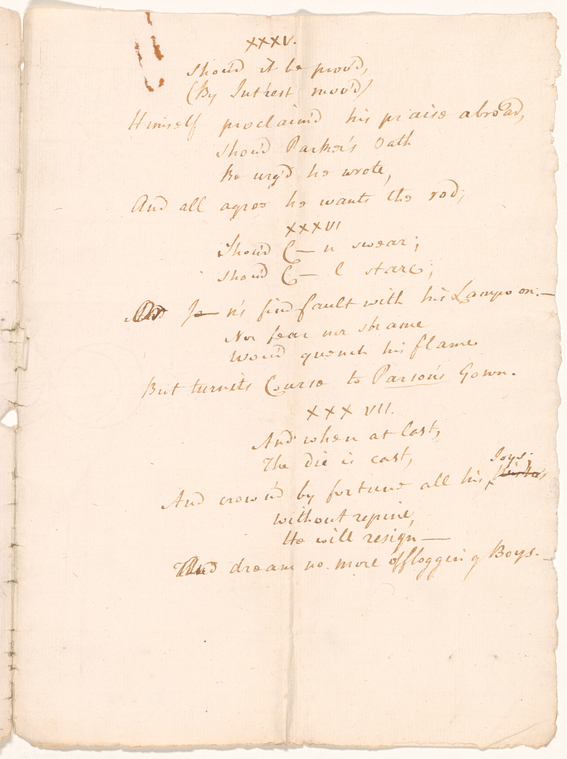 XXXV.
Shou'd it be prov'd,
(By Int'rest mov'd)
Himself proclaim'd his praise abroad,
Shou'd Parker's Oath
Be urg'd he wrote,
And all agree he wants the rod;
XXXVI
Shou'd C—n swear;
Shou'd C—l stare;
Or J—n's find fault with his Lampoon:—
Nor fear nor shame
Wou'd quench his flame
But turn its Course to Parson's Gown.
XXXVII.
And when at last,
The die is cast,
Joys;
And crown'd by fortune all his
without repine,
He will resign—
And dream no more of flogging Boys.—